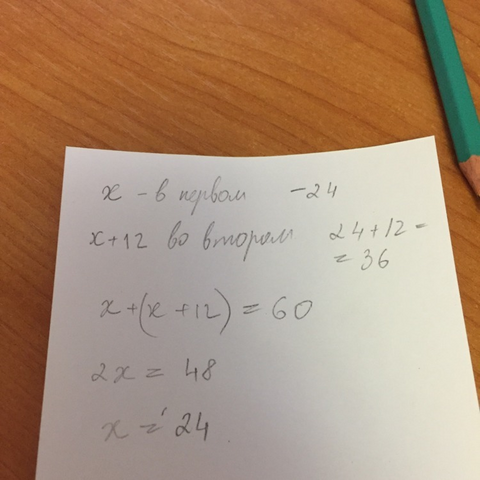 x - в первом -24
x+12 во втором 24+12=
=36
x+(x+12)=60
2x=48
x=24